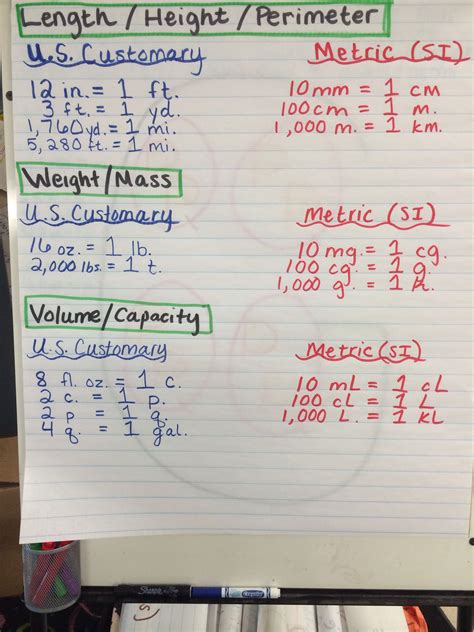 Length/Height/Perimeter
U.S. Customary
12 in. = 1 ft.
3 ft. = 1 yd.
1,760 yd. = 1 mi.
5,280 ft. = 1 mi.
Metric (SI)
10 mm = 1 cm
100 cm = 1 m.
1,000 m. = 1 km.
Weight/Mass
U.S. Customary
16 oz. = 1 lb.
2,000 lbs. = 1 t.
Metric (SI)
10 mg. = 1 cg.
100 cg. = 1 g.
1,000 g. = 1
Volume/Capacity
U.S. Customary
8 fl. oz. = 1 c.
2 c. = 1 p.
2 p = 1 q.
4 q. = 1 gal.
Metric (SI)
10 mL = 1 cL
100 cL = 1 L
1,000 L. = 1 kL
Sharpie